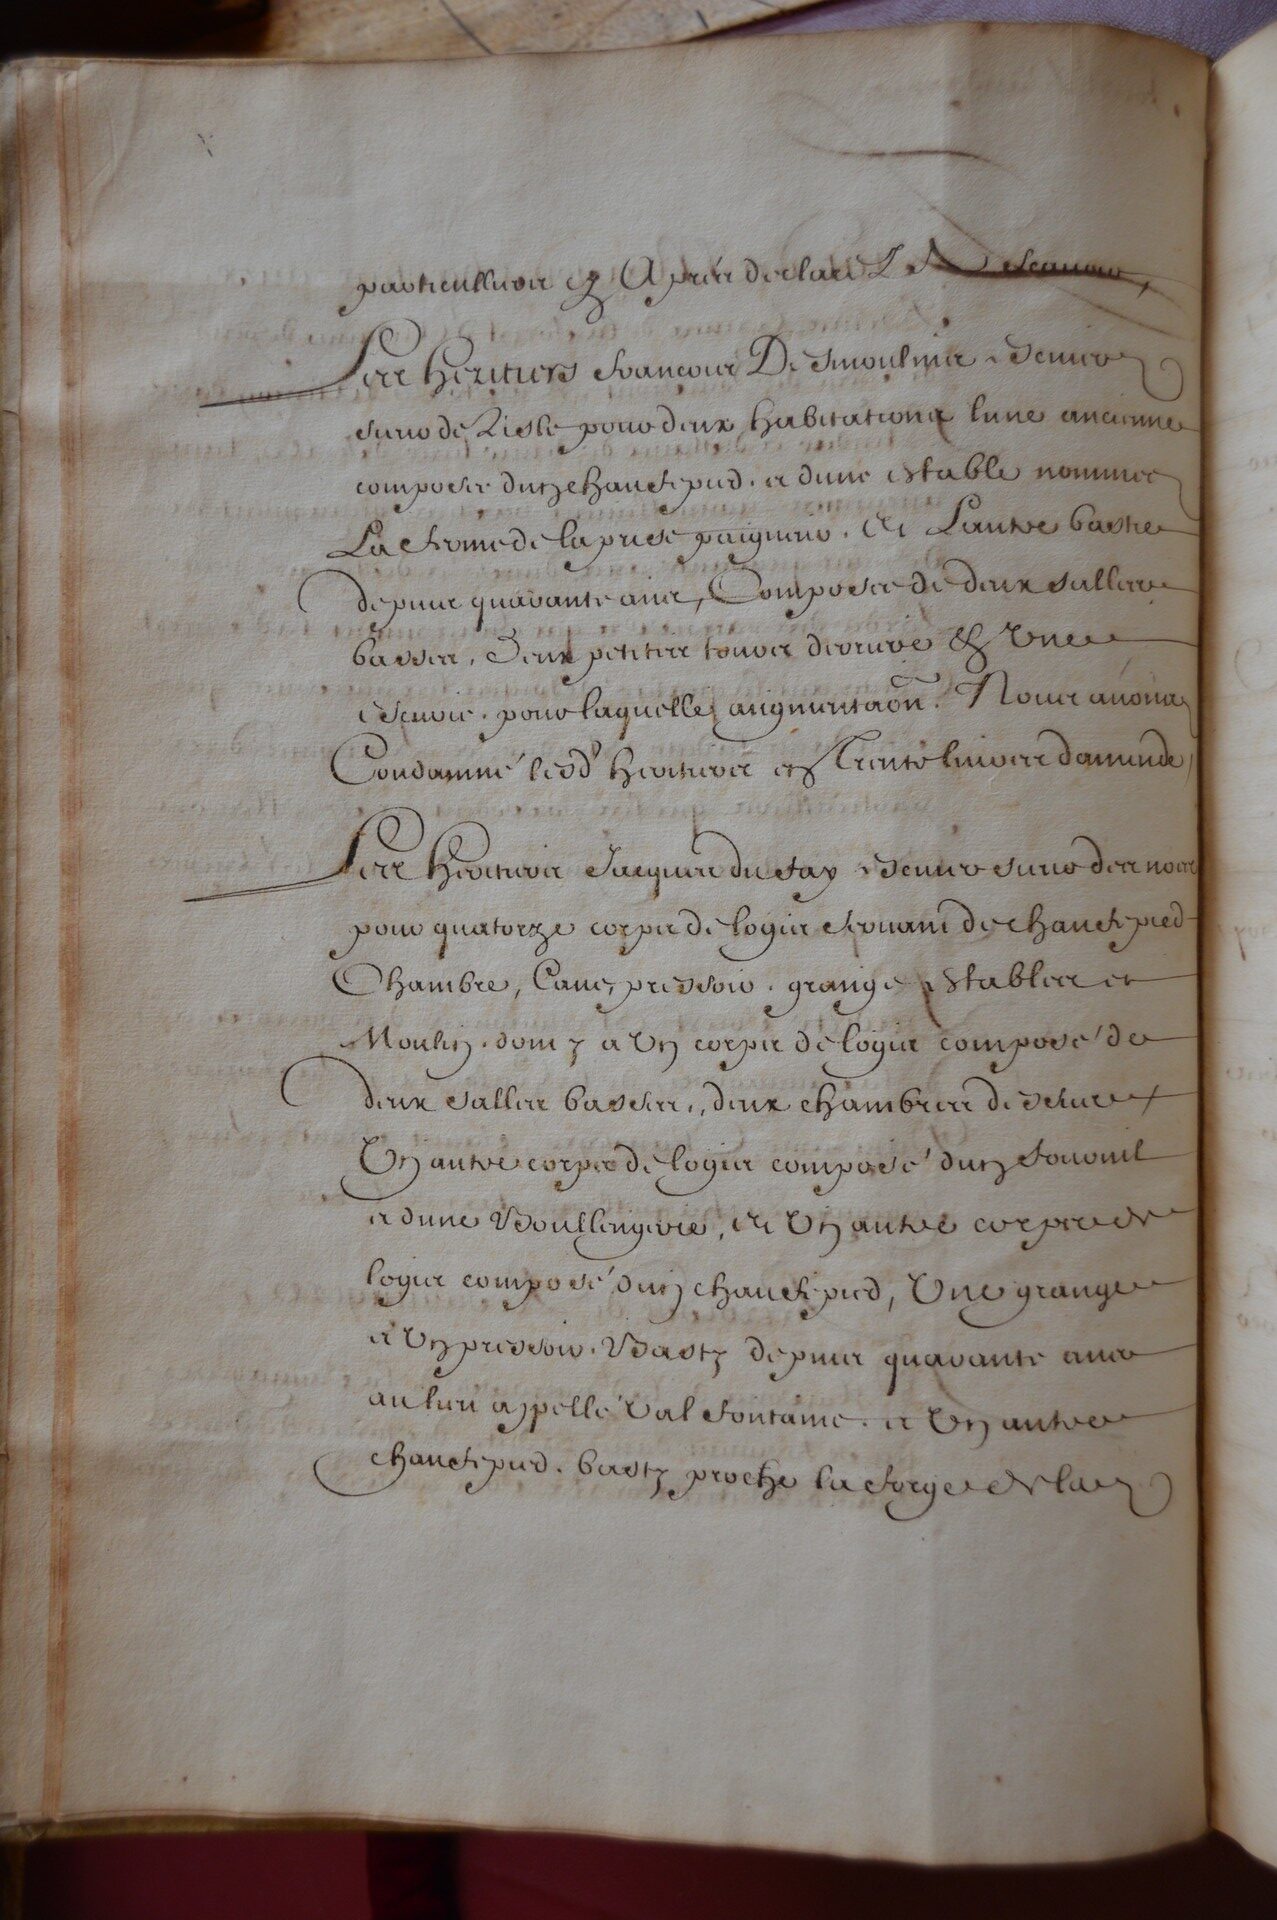 particulliers cy Apres declarés Scavoir,
Les Heritiers francois Desmoulins escuier
sieur de Lisle pour deux habitations lune ancienne
composée dung chaufepied. et dune estable nommée
La ferme de la prise paigneur. Et Lautre bastie
depuis quarante ans, Composée de deux salles
basses, deux petites tours derriere Et Une
escurie. pour laquelle augmentaon. Nous avons
Condamné lesd heritiers en Trente livres damende,
Les Heritiers Jacques du fay escuier sieur des noes
pour quatorze corps de logis servant de chaufepied
Chambre, Cave, pressoir. grange estables et
Moulin. dont y a Ung corps de logis composé de
deux salles basses, deux chambres dessus
Ung autre corps de logis composé dung fournil
et dune Boullengerie, Et Ung autre corps de
logis composé dung chaufepied, Une grange
et Ung pressoir. Basty depuis quarante ans
au lieu appellé Val fontaine. et Ung autre
chaufepied. basty proche la forge de la